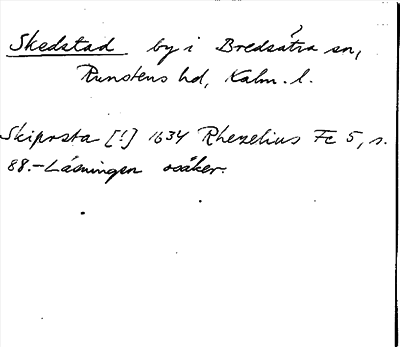 Skedstad by i Bredsätra sn,
Runstens hd, Kalm. l.
Skiprsta [!] 1634 Rhezelius Fc 5, s.
88. - Läsningen osäker.